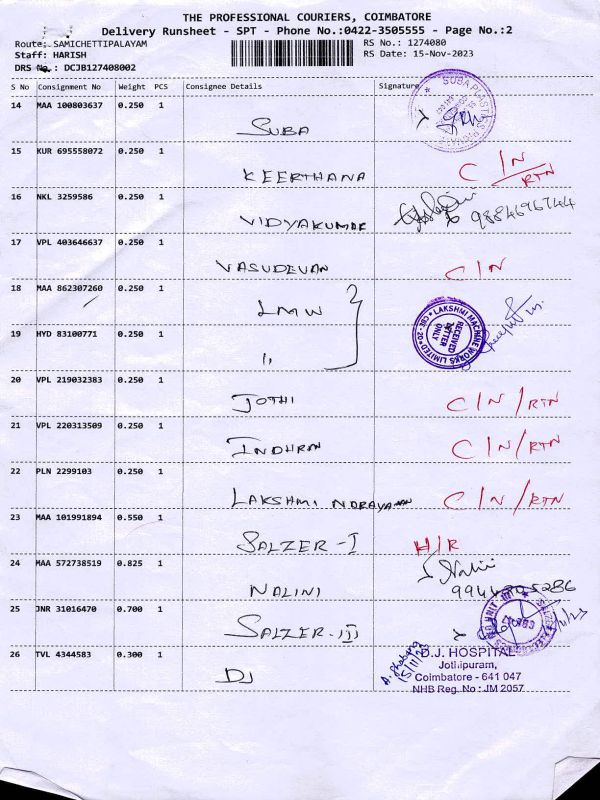 THE PROFESSIONAL COURIERS, COIMBATORE
Delivery Runsheet - SPT - Phone No.:0422-3505555 - Page No.:2
Route: SAMICHETTIPALAYAM RS No.: 1274080
Staff: HARISH RS Date: 15-Nov-2023
DRS No.: DCJB127408002
S No Consignment No Weight PCS Consignee Details Signature
14 MAA 100803637 0.250 1
SUBA
15 KUR 695558072 0.250 1
KEERTHANA C/N
RTN
16 NKL 3259586 0.250 1
VIDYAKUMAR 9884696744
17 VPL 403646637 0.250 1
VASUDEVAN C/N
18 MAA 862307260 0.250 1
LMW
LAKSHMI MACHINE WORKS LIMITED
RECEIVED
LETTER
ONLY
19 HYD 83100771 0.250 1
11
20 VPL 219032383 0.250 1
JOTHI C/N/RTN
21 VPL 220313509 0.250 1
INDHRAN C/N/RTN
22 PLN 2299103 0.250 1
LAKSHMI NARAYANAN C/N/RTN
23 MAA 101991894 0.550 1
SALZER-I H/R
24 MAA 572738519 0.825 1
Nalini
NALINI
25 JNR 31016470 0.700 1
SALZER-III
26 TVL 4344583 0.300 1
DJ
15/11/23
D.J. HOSPITAL
Jothipuram,
Coimbatore - 641 047
NHB Reg. No : JM 2057